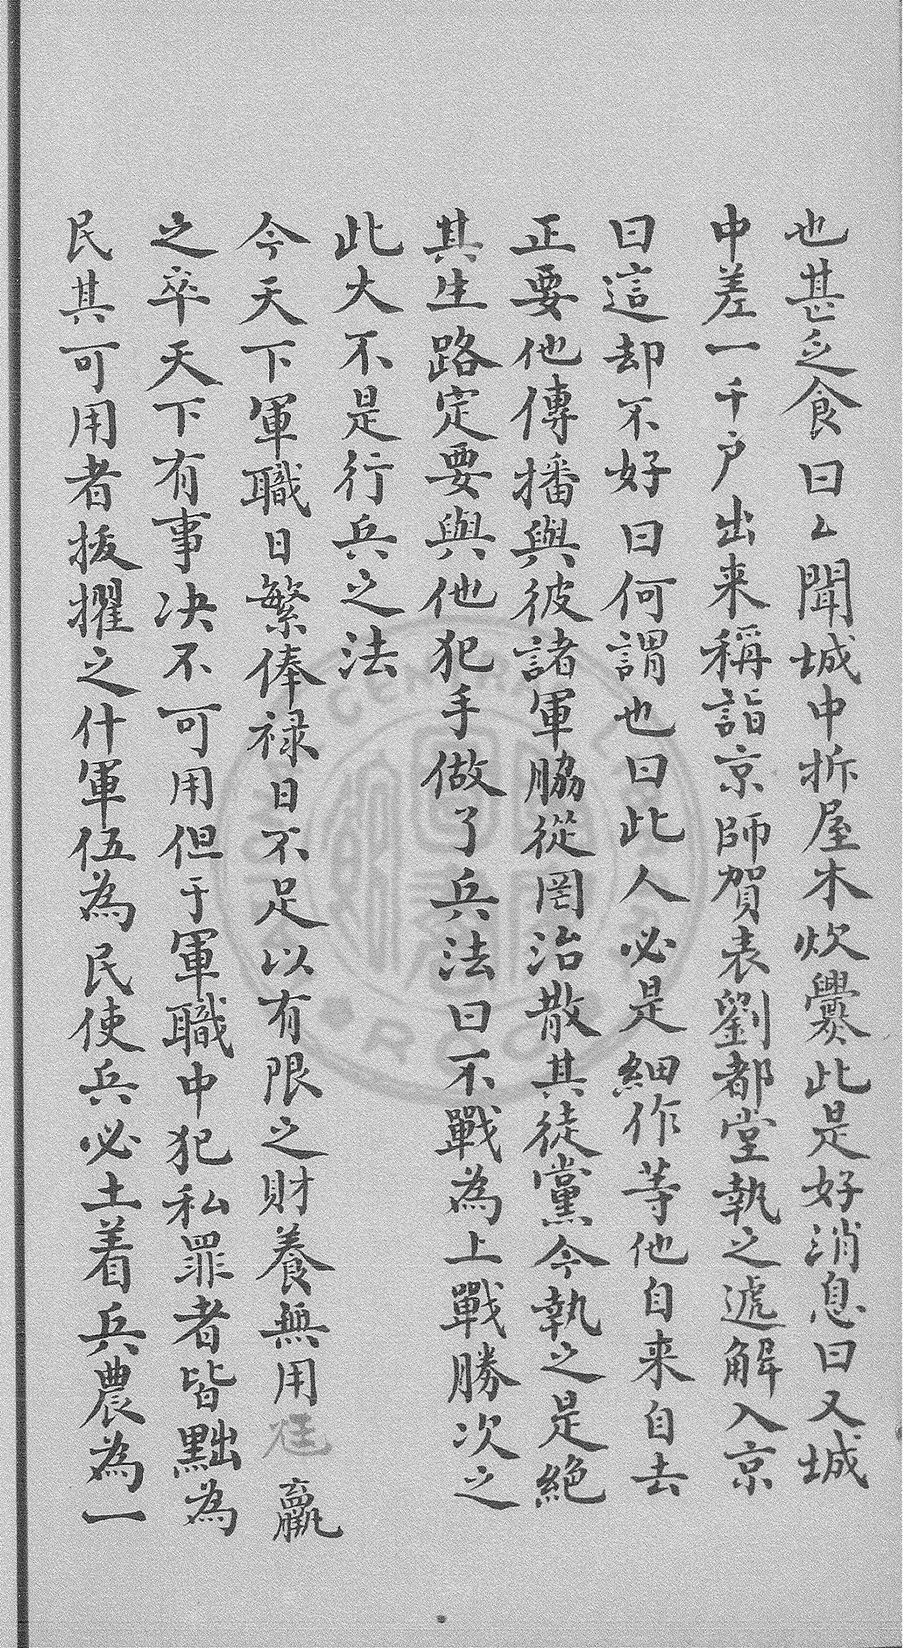 也甚乏食曰又聞城中拆屋木炊爨此是好消息曰又城
中差一千户出来稱詣京師賀表劉都堂執之遞解入京
曰這却不好曰何謂也曰此人必是細作等他自来自去
正要他傳播與彼諸軍脇從罔治散其徒黨今執之是絕
其生路定要與他犯手做了兵法曰不戰為上戰勝次之
此大不是行兵之法
今天下軍職日繁俸禄日不足以有限之財養無用尫羸
之卒天下有事决不可用但于軍職中犯私罪者皆黜為
民其可用者拔擢之什軍伍為民使兵必土着兵農為一
CENTRAL
ROC